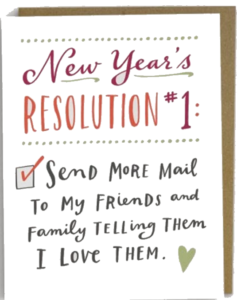 New Year's
RESOLUTION #1:
SEND MORE MAIL
TO MY FRIENDS and
FAMILY TELLING THEM
I LOVE THEM.